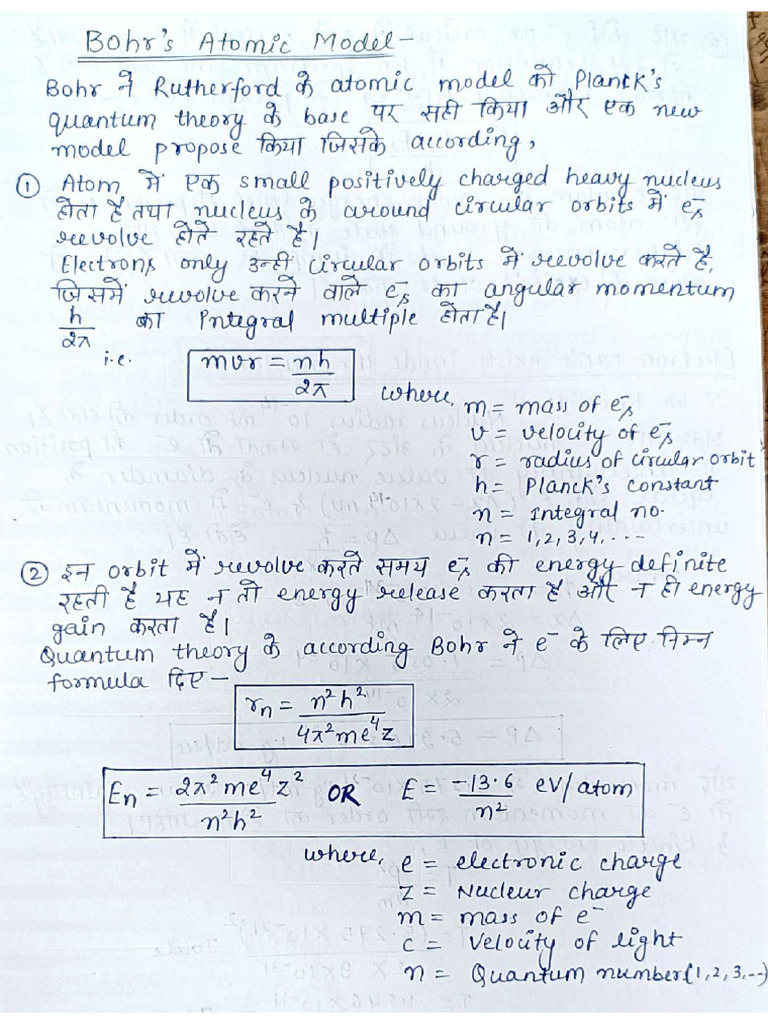 Bohr's Atomic Model-
Bohr ने Rutherford के atomic model को Planck's
quantum theory के base पर सही किया और एक new
model propose किया जिसके according,
① Atom में एक small positively charged heavy nucleus
होता है तथा nucleus के around circular orbits में e⁻s
revolve होते रहते हैं।
Electrons only उन्हीं circular orbits में revolve करते है,
जिसमें revolve करने वाले e⁻s का angular momentum
h/2π का Integral multiple होता है।
i.e. mvr = nh/2π
where, m = mass of e⁻s
v = velocity of e⁻s
r = radius of circular orbit
h = Planck's constant
n = Integral no.
n = 1,2,3,4,----
② इन orbit में revolve करते समय e⁻s की energy definite
रहती है यह न तो energy release करता है और न ही energy
gain करता है।
Quantum theory के according Bohr ने e⁻ के लिए निम्न
formula दिए-
rₙ = n²h²/4π²me⁴z
Eₙ = 2π²me⁴z²/n²h² OR E = -13.6/n² eV/atom
where, e = electronic charge
z = Nucleur charge
m = mass of e⁻
c = velocity of light
n = Quantum number(1,2,3,--)